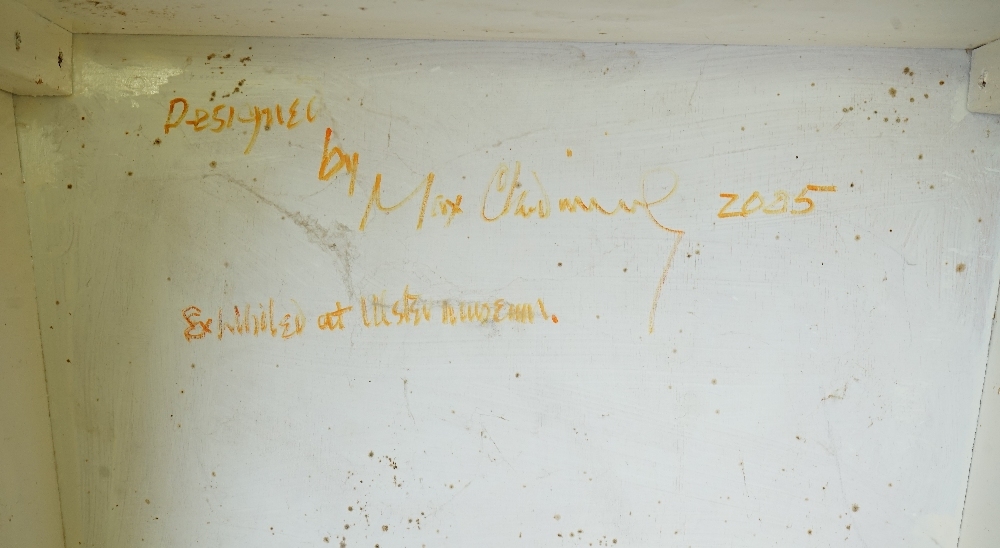 Designed
by
Max 2005
Exhibited at Ulster museum.